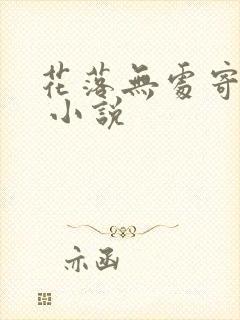 花落無處寄
小說
亦函